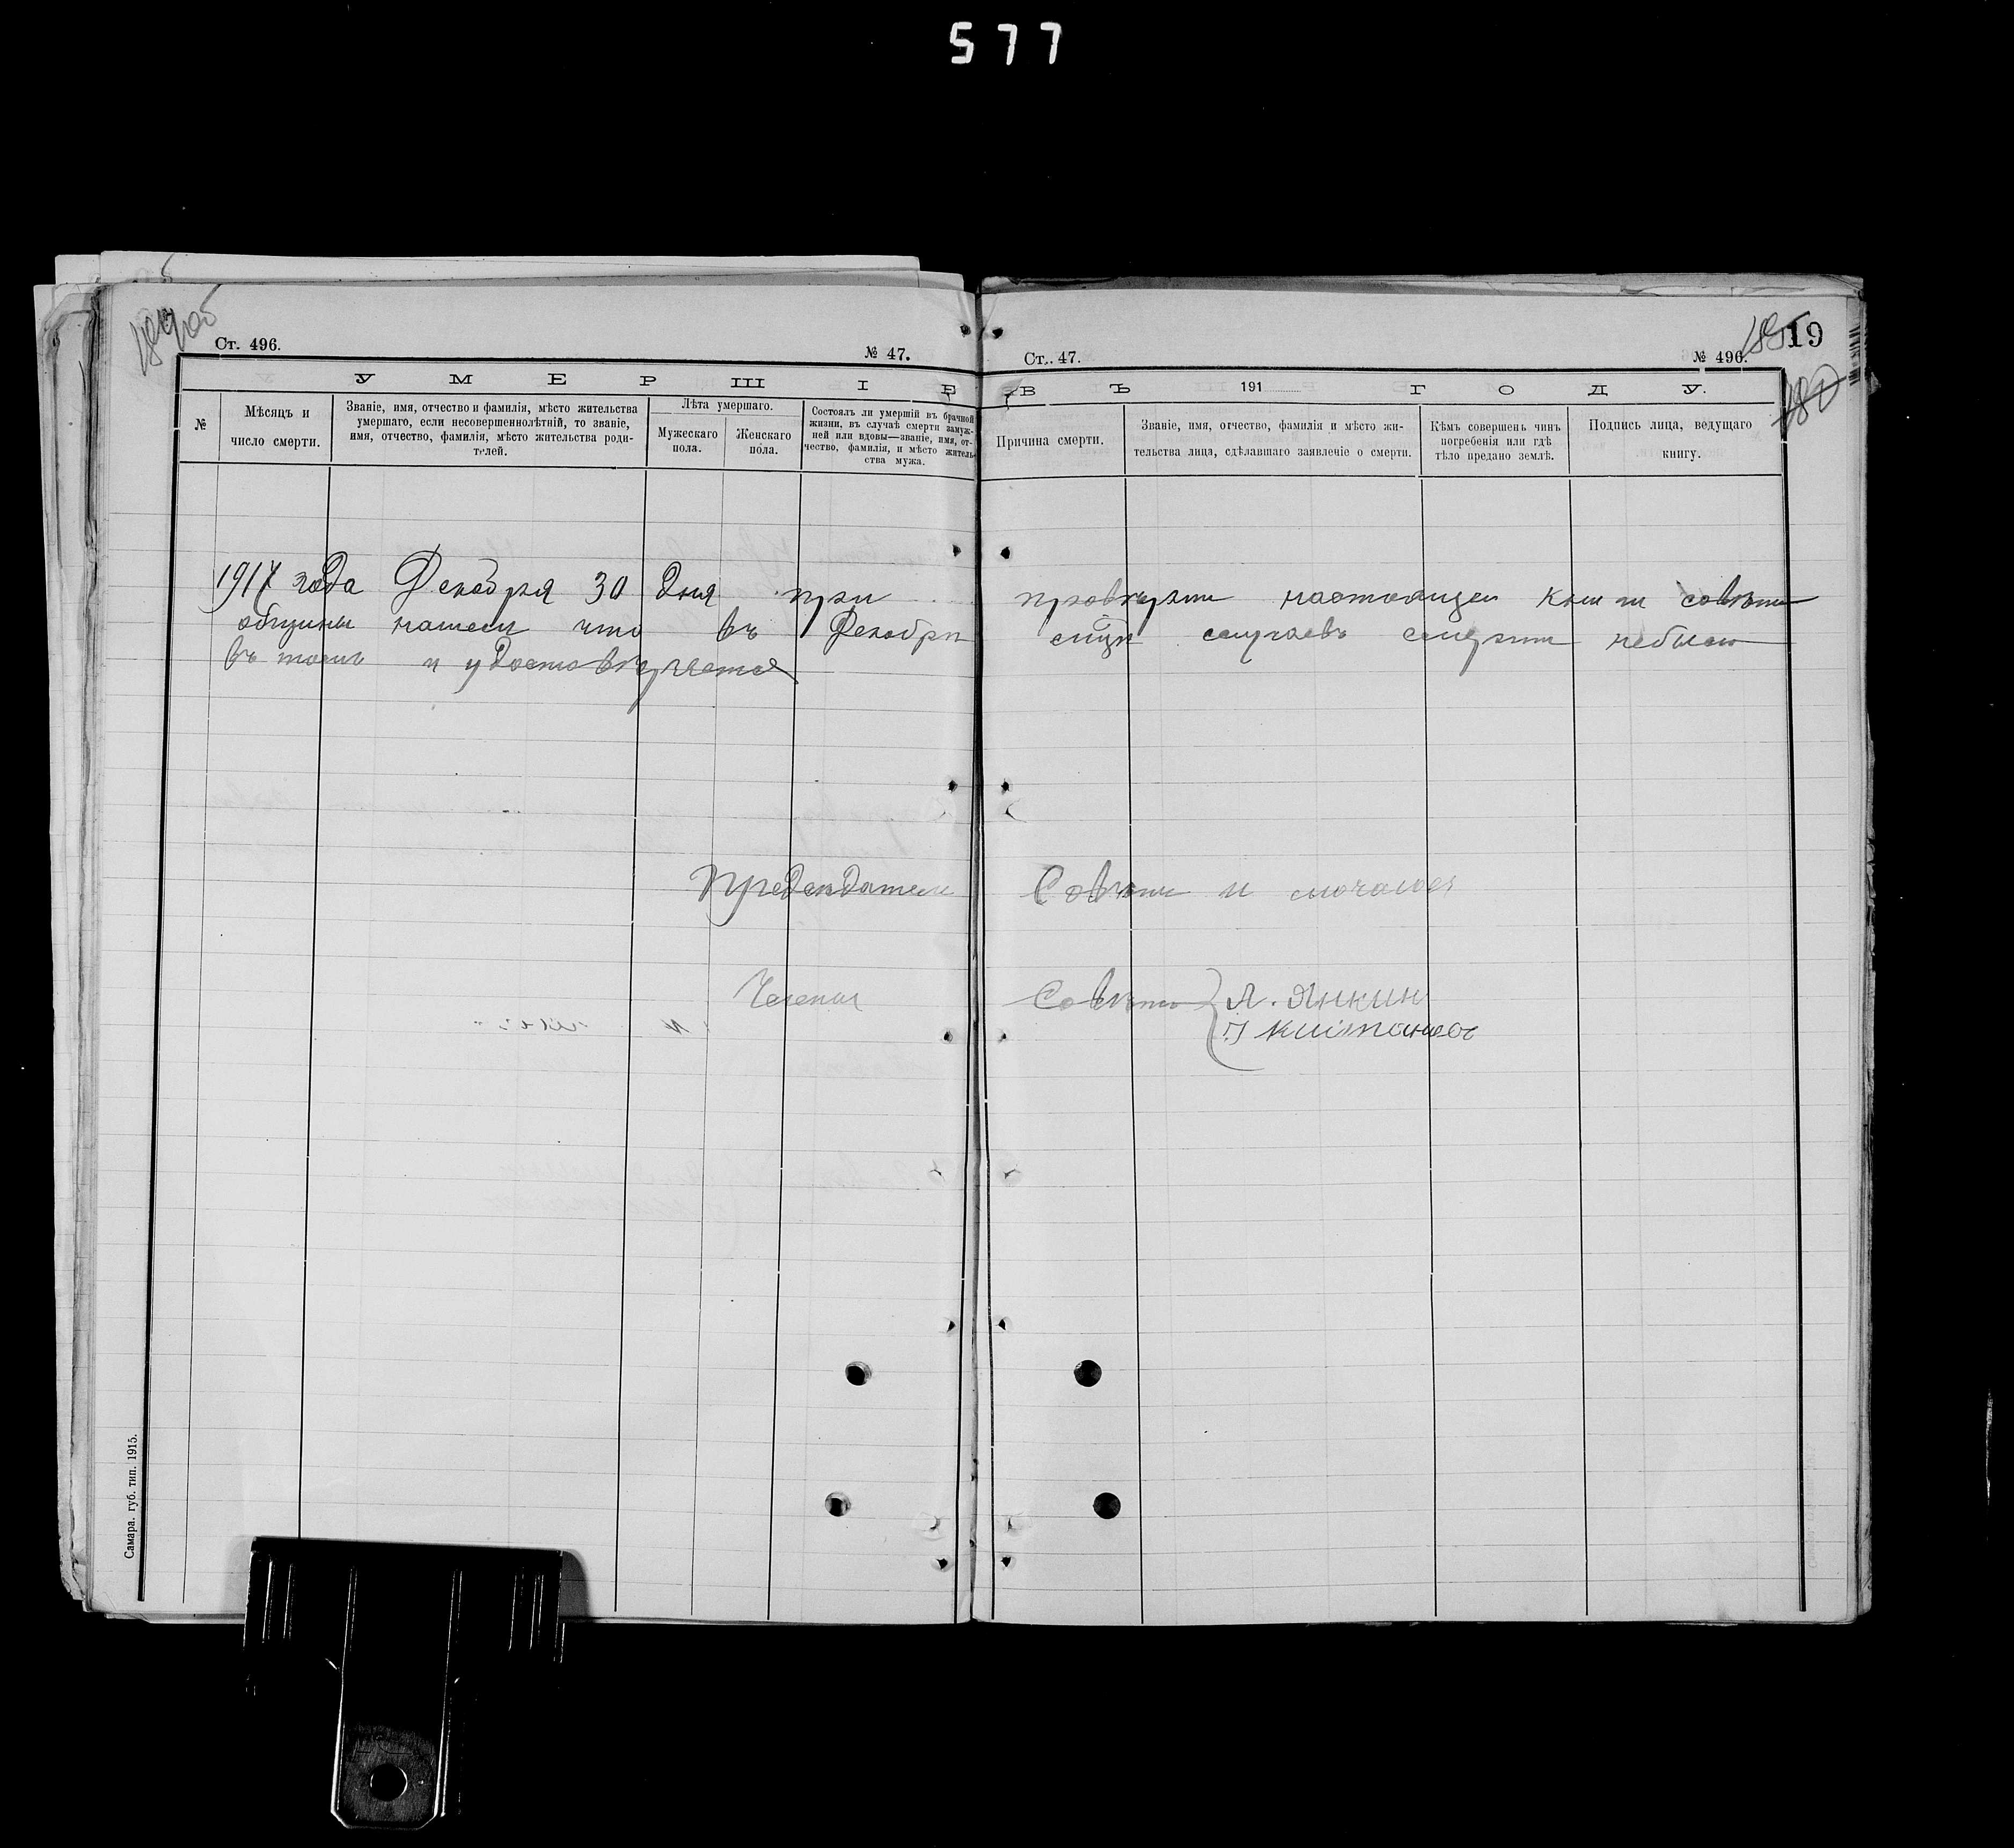 577
Ст. 496.
№ 47.
Ст. 47.
№ 496.
19
У М Е Р Ш І Е
ВЪ 191 Г О Д У.
№
Мѣсяцъ и число смерти.
Званіе, имя, отчество и фамилія, мѣсто жительства
умершаго, если несовершеннолѣтній, то званіе,
имя, отчество, фамилія, мѣсто жительства роди-
телей.
Лѣта умершаго.
Мужескаго пола.
Женскаго пола.
Состоялъ ли умершій въ брачной
жизни, въ случаѣ смерти замуж-
ней или вдовы—званіе, имя, от-
чество, фамилія, и мѣсто житель-
ства мужа.
Причина смерти.
Званіе, имя, отчество, фамилія и мѣсто жи-
тельства лица, сдѣлавшаго заявленіе о смерти.
Кѣмъ совершенъ чинъ
погребенія или гдѣ
тѣло предано землѣ.
Подпись лица, ведущаго
книгу.
1917 года Декабря 30 дня при провѣрки настоящей книги совѣтъ
общины нашелъ что въ Декабрѣ случаевъ смерти небыло
въ томъ и удостовѣряется
Председатель Совѣта
Члены Совѣта Л. Янкин
Самара. губ. тип. 1915.